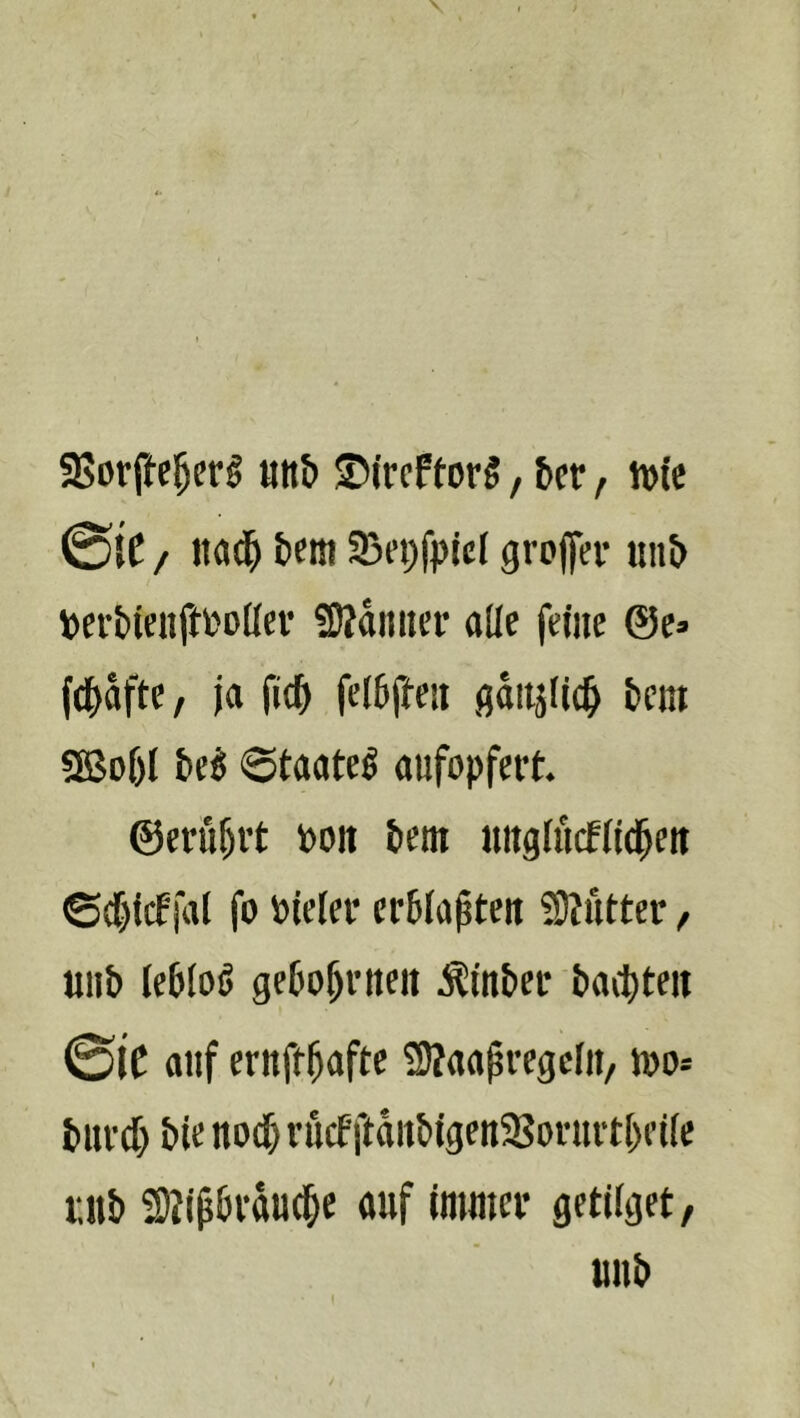 Vorſteherś und Direktorś, der, wie
Sie, nach dem Beyſpiel groſſer und
verdienſtvoller Männer alle ſeine Ge-
ſchäfte, ja ſich ſelbſten gänzlich dem
Wohl des Staates aufopfert.
Gerührt von dem unglücklichen
Schickſal ſo vieler erblaßten Mütter,
und leblos gebohrnen Kinder dachten
Sie auf ernſthafte Maaßregeln, wo-
durch die noch rückſtändigen Vorurtheile
und Mißbräuche auf immer getilget,
und